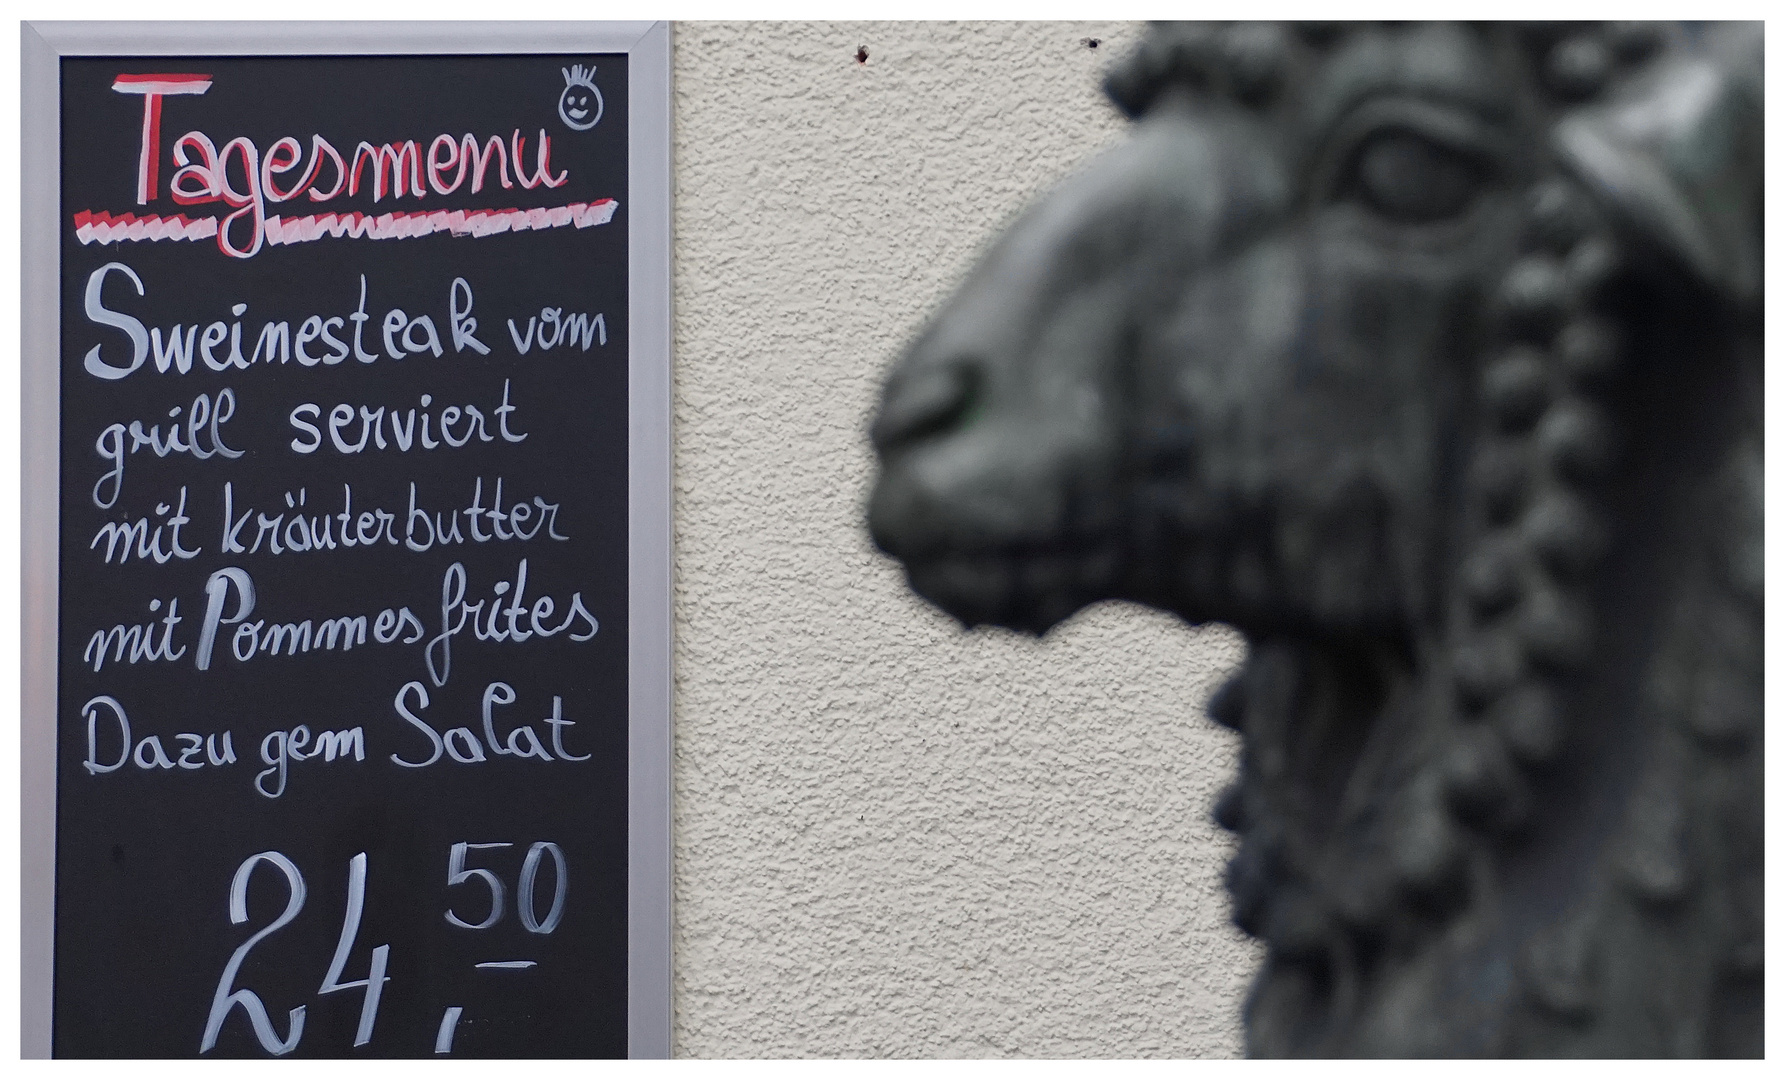 Tagesmenu
Sweinesteak vom
grill serviert
mit kräuterbutter
mit Pommes frites
Dazu gem Salat
24,50